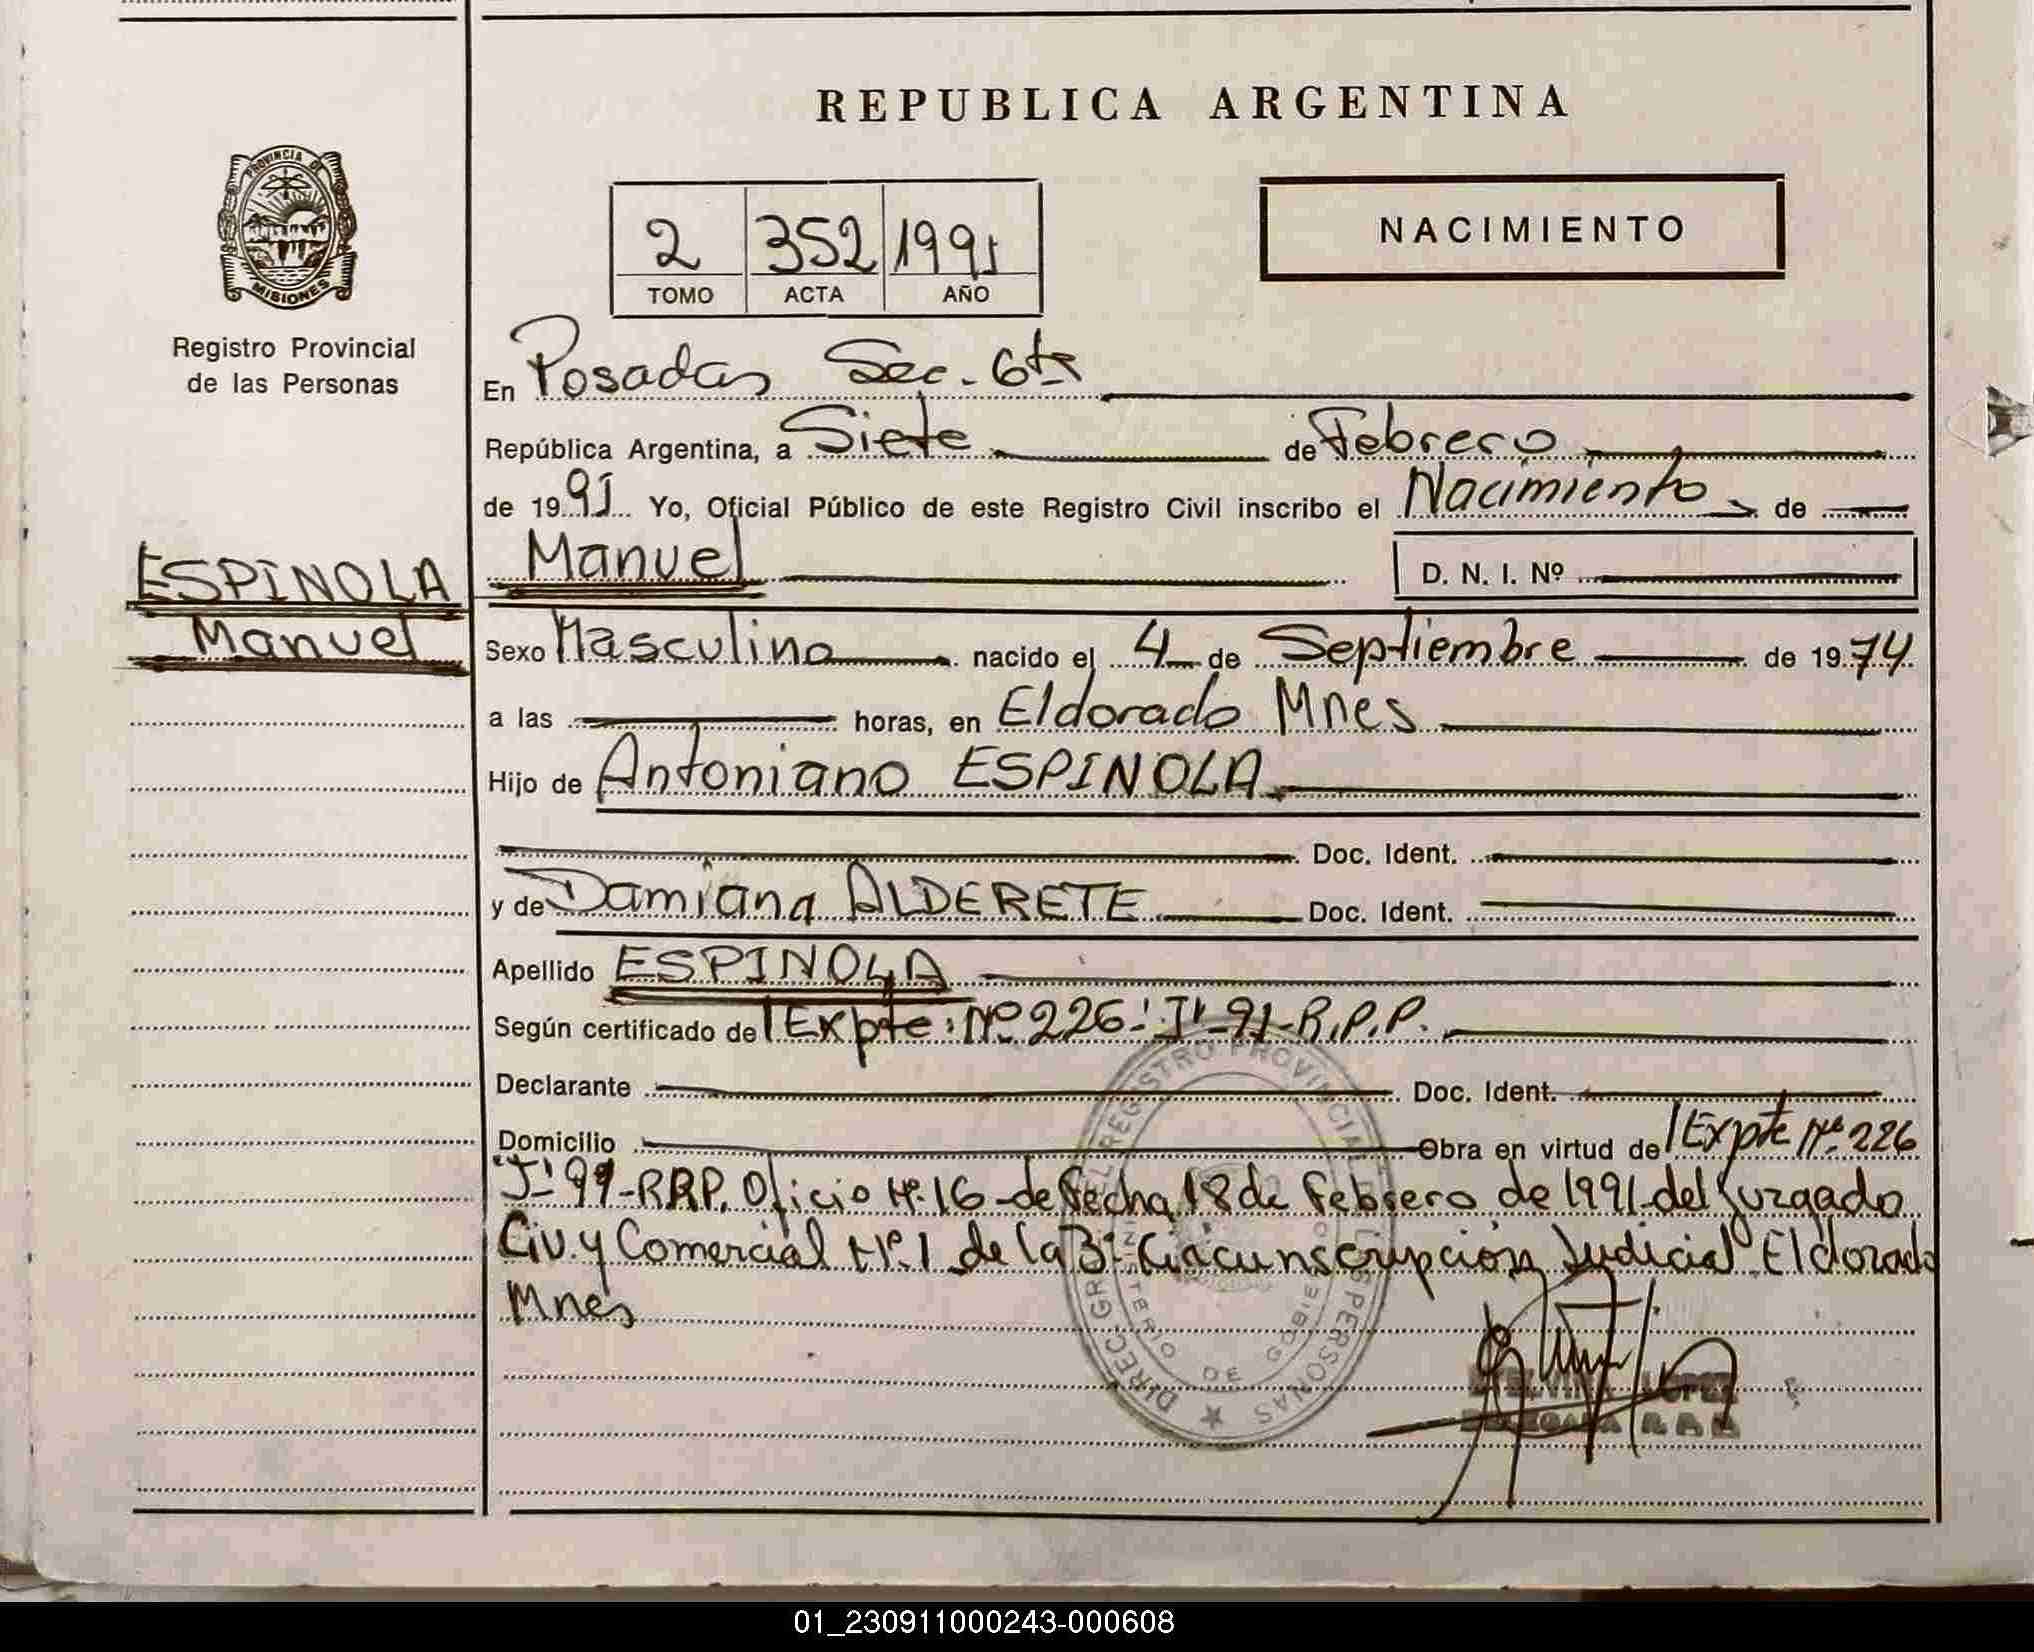 REPUBLICA ARGENTINA
PROVINCIA DE
MISIONES
Registro Provincial
de las Personas
2 352 1991
TOMO ACTA AÑO
NACIMIENTO
En Posadas Sec. 6ta
República Argentina, a Siete de Febrero
de 1991 Yo, Oficial Público de este Registro Civil inscribo el Nacimiento de
ESPINOLA
Manuel
Manuel D. N. I. Nº
Sexo Masculino nacido el 4 de Septiembre de 1974
a las horas, en Eldorado Mnes
Hijo de Antoniano ESPINOLA
Doc. Ident.
y de Damiana ALDERETE Doc. Ident.
Apellido ESPINOLA
Según certificado de Expte: Nº 226-"J"-91-R.P.P.
Declarante Doc. Ident.
Domicilio Obra en virtud de Expte Nº 226
"J" 91-R.R.P. Oficio Nº 16-de fecha 18 de Febrero de 1991-del Juzgado
Civ. y Comercial Nº 1 de la 3ª Circunscripción Judicial Eldorado
Mnes
DIREC. GRAL. DEL REGISTRO PROVINCIAL DE LAS PERSONAS
MINISTERIO DE GOBIERNO
LOPEZ
DELEGADA
01_230911000243-000608